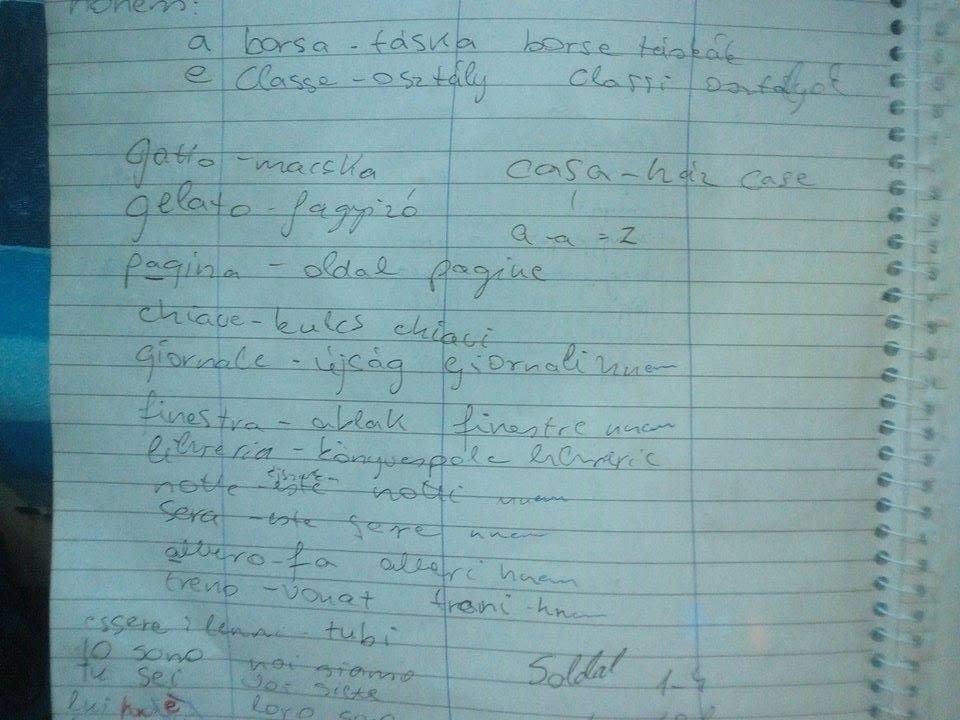 nőnem:
a borsa - táska borse táskák
e classe - osztály classi osztályok
gatto - macska casa - ház case
gelato - fagyizó
a - a = z
pagina - oldal pagine
chiave - kulcs chiavi
giornale - újság giornali hnem
finestra - ablak finestre nnem
libreria - könyvespolc librerie
notte - este notti nnem
sera - este sere nnem
albero - fa alberi hnem
treno - vonat treni - hnem
essere : lenni - tubi
io sono noi siamo
tu sei voi siete 5oldal
lui è loro